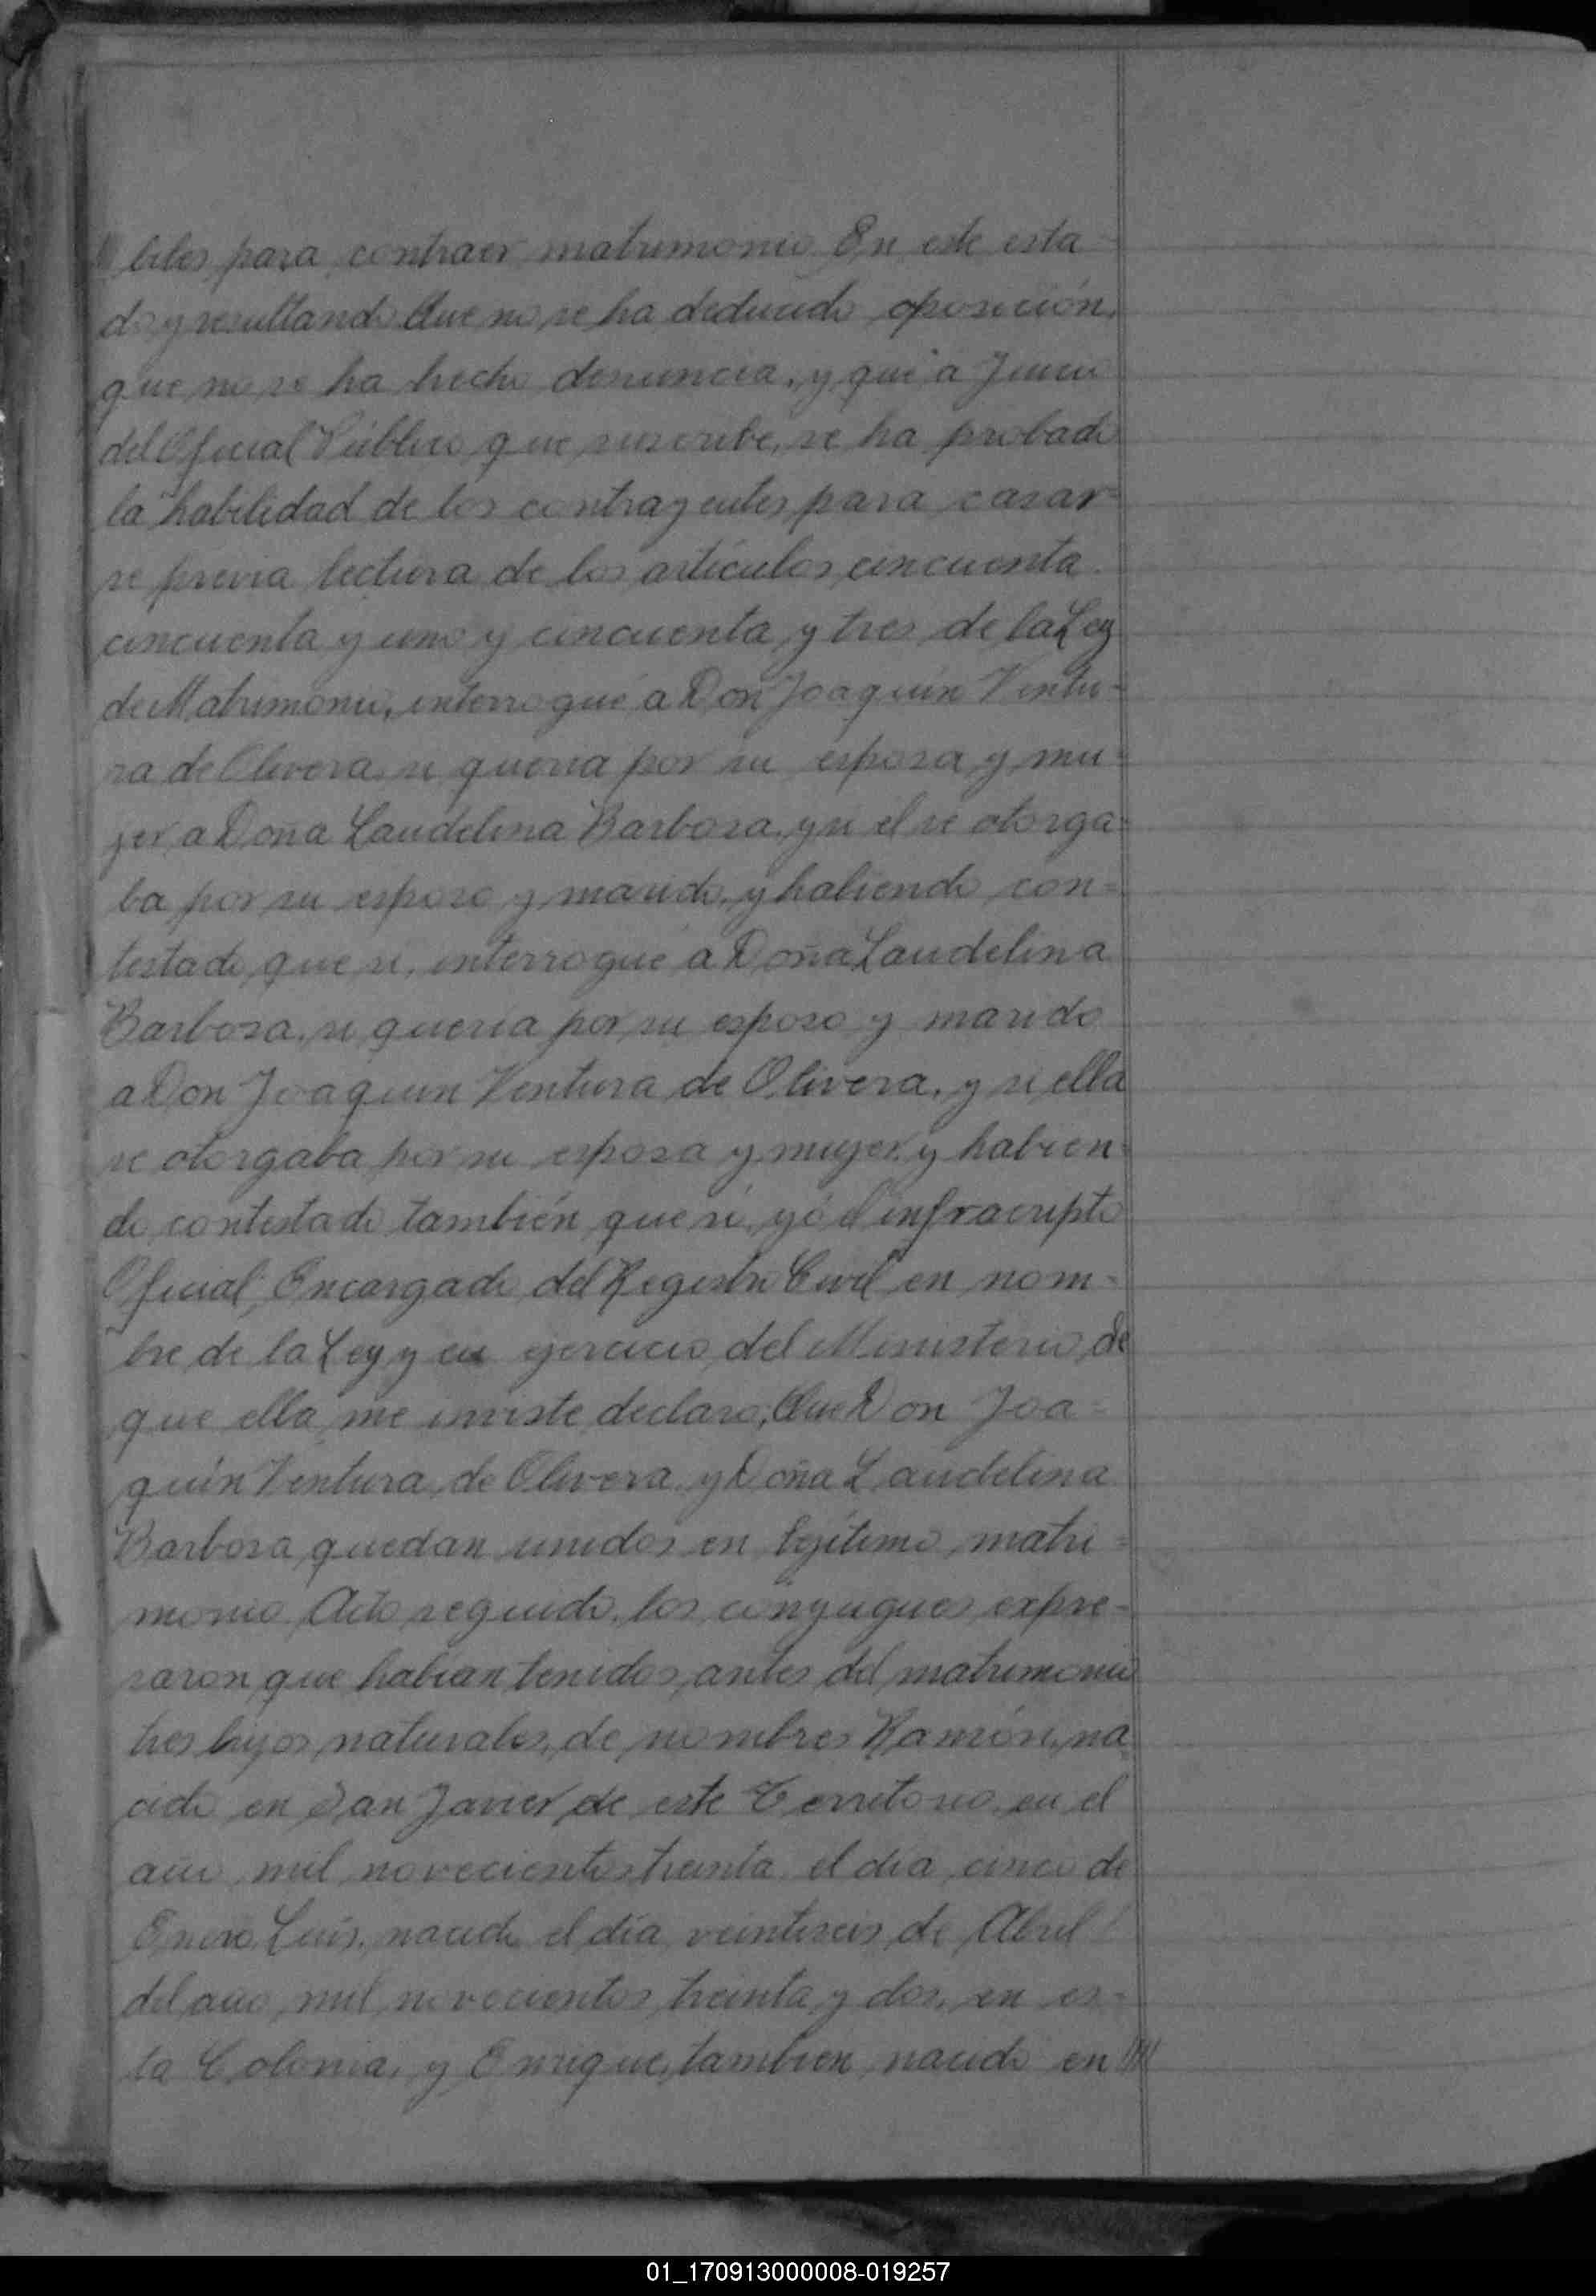 biles para contraer matrimonio En este esta-
do y resultando Que no se ha deducido oposición,
que no se ha hecho denuncia, y que a Juicio
del Oficial Público que suscribe, se ha probado
la habilidad de los contrayentes para casar=
se previa lectura de los artículos cincuenta
cincuenta y uno y cincuenta y tres de la Ley
de Matrimonio, interrogué a Don Joaquín Ventu-
ra de Olivera, si quería por su esposa y mu-
jer a Doña Laudelina Barbosa, y si el se otorga-
ba por su esposo y marido, y habiendo con=
testado que si, interrogué a Doña Laudelina
Barbosa, si quería por su esposo y marido
a Don Joaquin Ventura de Olivera, y si ella
se otorgaba por su esposa y mujer, y habien-
do contestado también que si, yó el infrascripto
Oficial, Encargado del Registro Civil en nom-
bre de la Ley y en ejercicio del Ministerio de
que ella me inviste declaro; Que Don Joa=
quín Ventura de Olivera y Doña Laudelina
Barbosa quedan unidos en legítimo matri=
monio Acto seguido, los conyugues expre-
saron que habian tenidos, antes del matrimonio
tres hijos naturales, de nombres Ramón, na
cido en San Javier de este Territorio en el
año mil novecientos treinta el dia cinco de
Enero Luis, nacido el día veintiseis de Abril
del año mil novecientos treinta y dos, en es-
ta Colonia, y Enrique, tambien nacido en
01_170913000008-019257